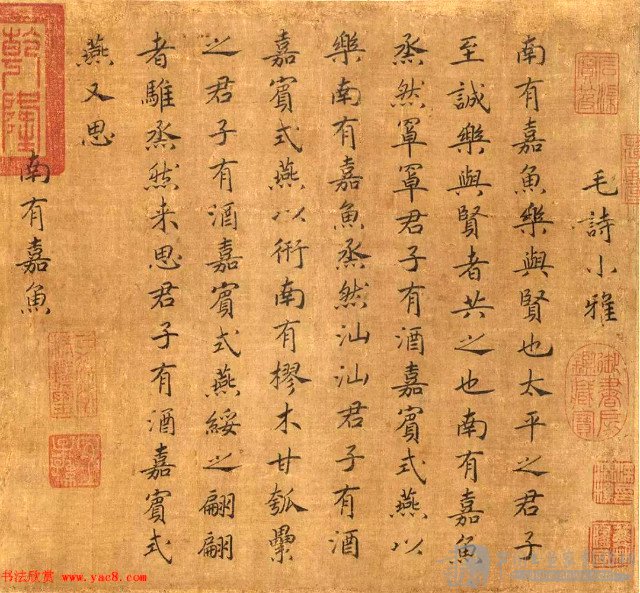 毛詩小雅
南有嘉魚樂與賢也太平之君子
至誠樂與賢者共之也南有嘉魚
烝然罩罩君子有酒嘉賓式燕以
樂南有嘉魚烝然汕汕君子有酒
嘉賓式燕以衎南有樛木甘瓠纍
之君子有酒嘉賓式燕綏之翩翩
者騅烝然来思君子有酒嘉賓式
燕又思
南有嘉魚
乾隆
书法欣赏 www.yac8.com